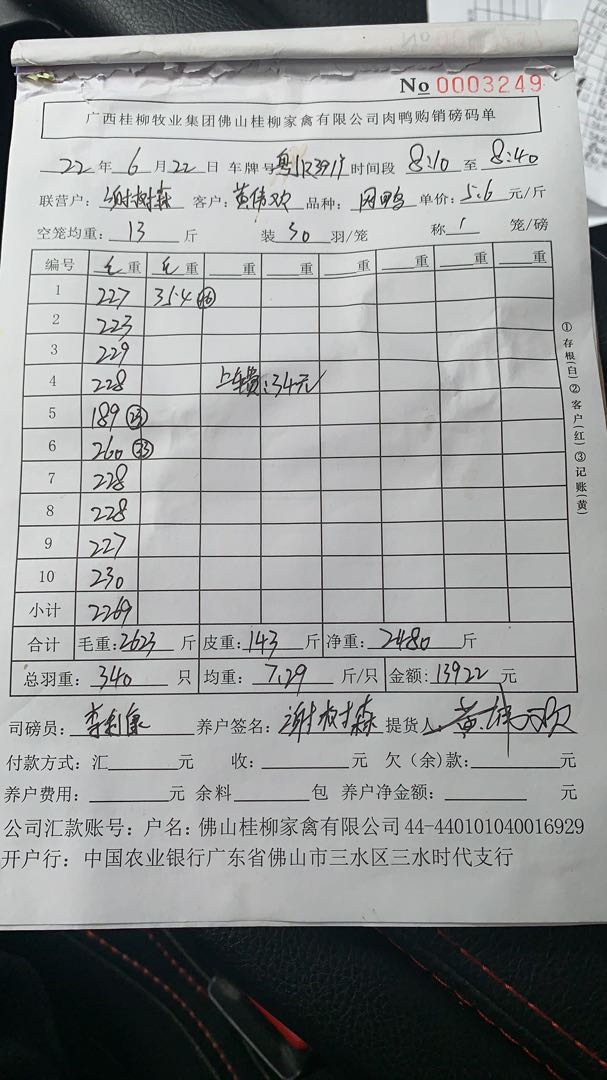 No 0003249
广西桂柳牧业集团佛山桂柳家禽有限公司肉鸭购销磅码单
22 年 6 月 22 日 车牌号 时间段 8:10 至 8:40
联营户: 谢树森 客户: 黄伟欢 品种: 单价: 5.6 元/斤
空笼均重: 13 斤 装 30 羽/笼 称 1 笼/磅
编号 毛重 毛重 重 重 重 重 重 重
1 227 354 16
2 223
3 229
4 228 上车费:34元
5 189 23
6 260 33
7 228
8 228
9 227
10 230
小计 2269
合计 毛重: 2623 斤 皮重: 143 斤 净重: 2480 斤
总羽重: 340 只 均重: 7.29 斤/只 金额: 13922 元
司磅员: 养户签名: 谢树森 提货人: 黄伟欢
付款方式: 汇 元 收: 元 欠(余)款: 元
养户费用: 元 余料 包 养户净金额: 元
公司汇款账号: 户名: 佛山桂柳家禽有限公司 44-440101040016929
开户行: 中国农业银行广东省佛山市三水区三水时代支行
①存根(白)②客户(红)③记账(黄)